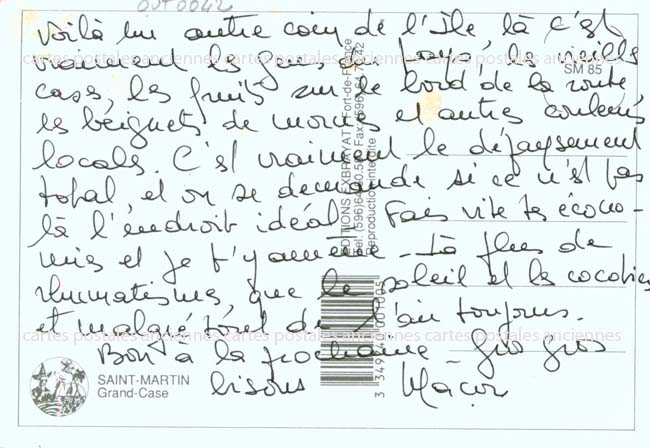 OUT0042
Voilà un autre coin de l'île, là c'est
vraiment les gens du pays, les vieilles
cases, les fruits sur le bord de la route
les beignets de morues et autres couleurs
locales. C'est vraiment le dépaysement
total, et on se demande si ce n'est pas
là l'endroit idéal. Fais vite tes écono-
mies et je t'y amène. Là plus de
rhumatismes, que le soleil et les cocotiers
et malgré tout de l'air toujours.
Bon à la prochaine - gros gros
bisous
cartes postales anciennes cartes postales anciennes cartes postales anciennes
cartes postales anciennes cartes postales anciennes cartes postales anciennes
SM 85
EDITIONS EXBRAYAT Fort-de-France
Reproduction interdite
SAINT-MARTIN
Grand-Case